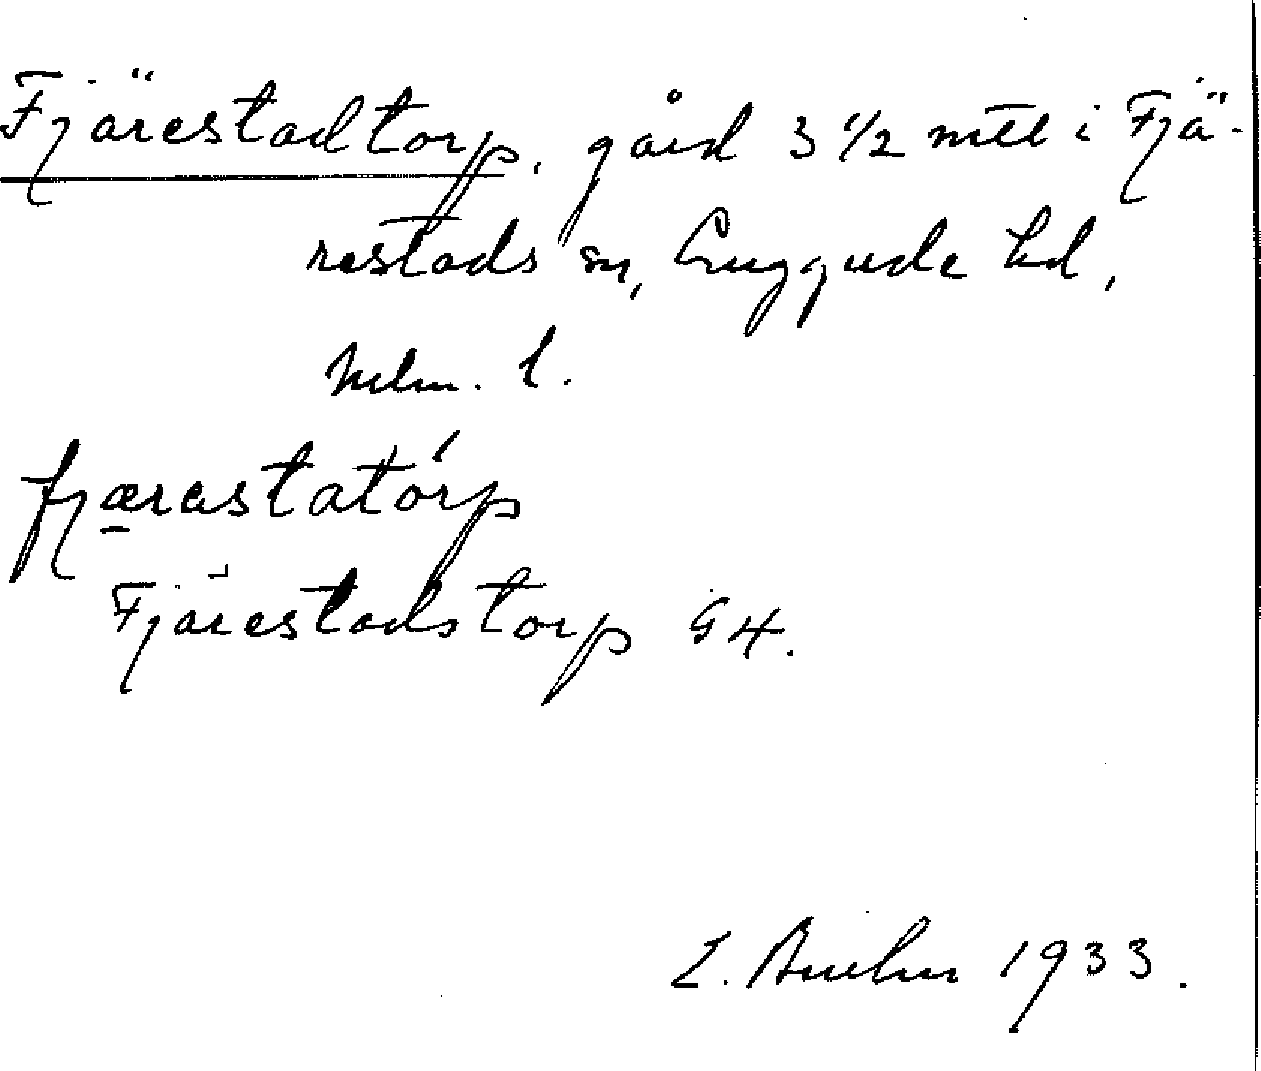 Fjärestadtorp, gård 3 1/2 mtl i Fjä-
restads sn, Luggude hd,
Mlm. l.
fjærastatórp
Fjärestadstorp G4.
1933.